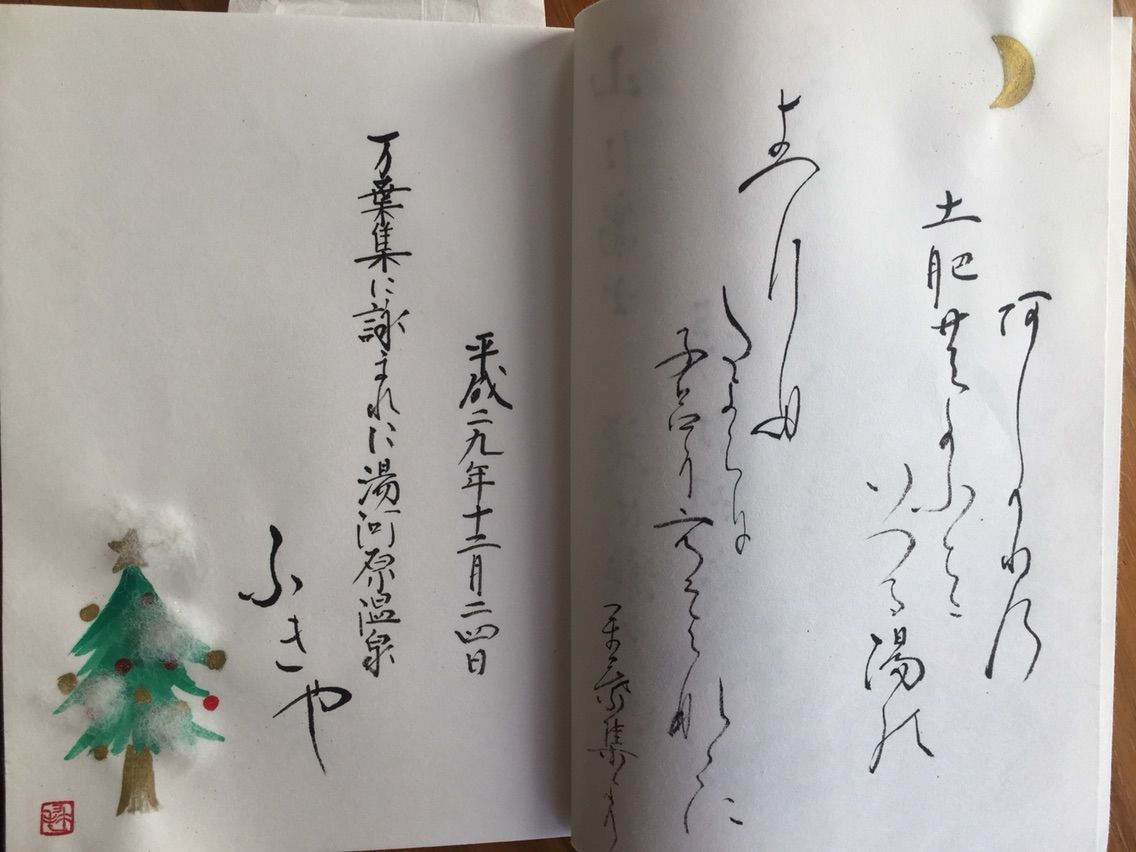 阿しかりの
土肥のかふちに
いつる湯の
よにも
たよらに
子ろか
言はなくに
万葉集より
平成二九年十二月二四日
万葉集に詠まれた湯河原温泉
ふきや